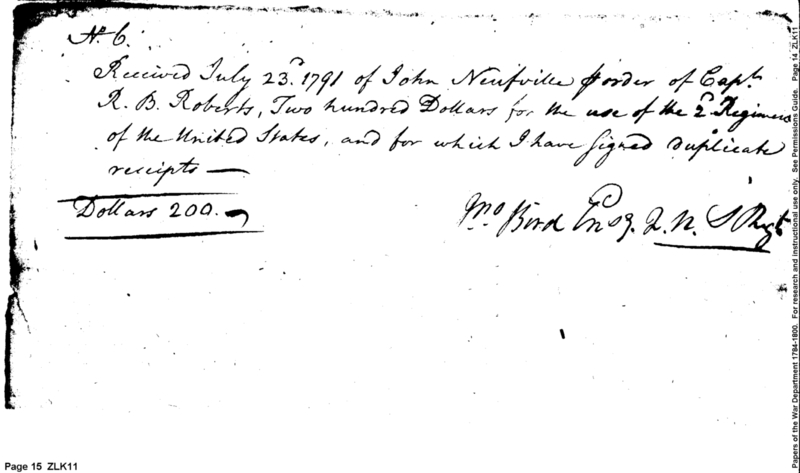 No. 6.
Received July 23d. 1791 of John Neufville ⅌ order of Capt.
R. B. Roberts, Two hundred Dollars for the use of the 2d Regiment
of the United States, and for which I have signed duplicate
receipts —
Dollars 200.
Jno. Bird Ensg. 2 U. S Regt.
Page 15 ZLK11
Papers of the War Department 1784-1800. For research and instructional use only. See Permissions Guide. Page 14 ZLK11